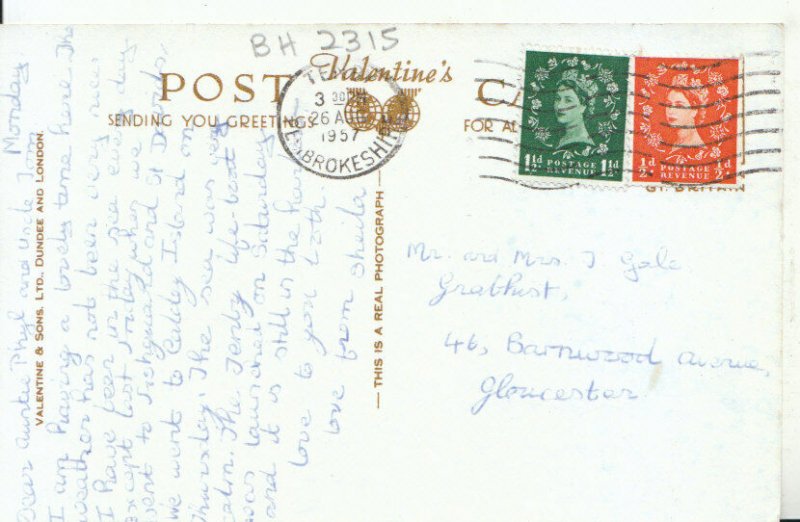 BH 2315
POST CA
Valentine's
SENDING YOU GREETINGS
FOR AL
GT. BRITAIN
3 30 PM
26 AUG
1957
PEMBROKESHIRE
1½d POSTAGE REVENUE 1½d
½d POSTAGE REVENUE ½d
VALENTINE & SONS, LTD., DUNDEE AND LONDON.
THIS IS A REAL PHOTOGRAPH
Monday
Dear Auntie Phyl and Uncle Jon,
I am having a lovely time here. The
weather has not been very nice
I have been in the sea every day
except last Friday when we
went to Fishguard and St Davids.
We went to Caldey Island on
Thursday. The sea was very
calm. The Tenby life-boat
was launched on Saturday
and it is still in the
love to you both
love from Sheila
Mr. and Mrs. J. Gale,
46, Barnwood Avenue,
Gloucester